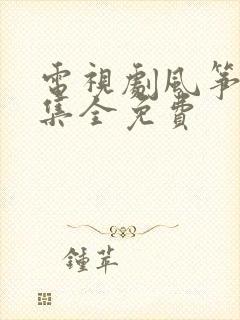 電視劇風箏
集全免費
鍾苹